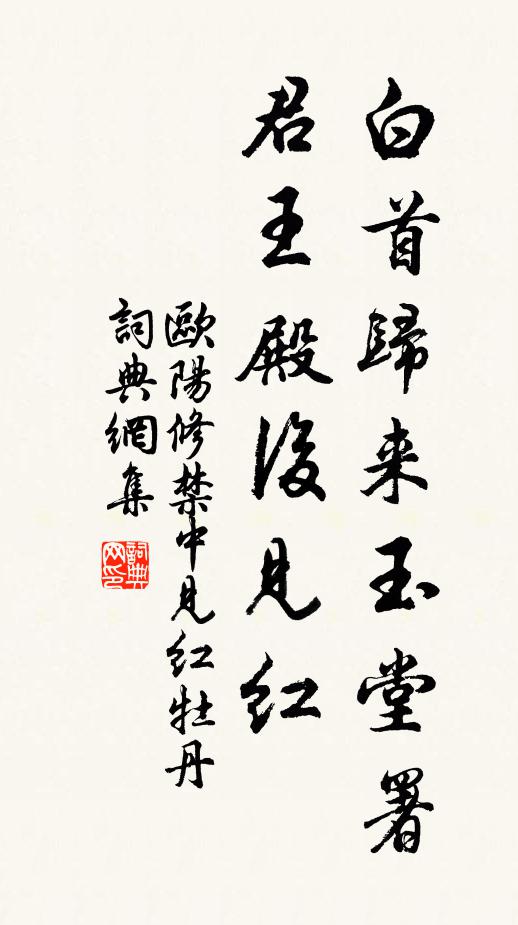 白首歸来玉堂署
君王殿後見紅
歐陽修禁中見紅牡丹
詞典網集
詞典网印